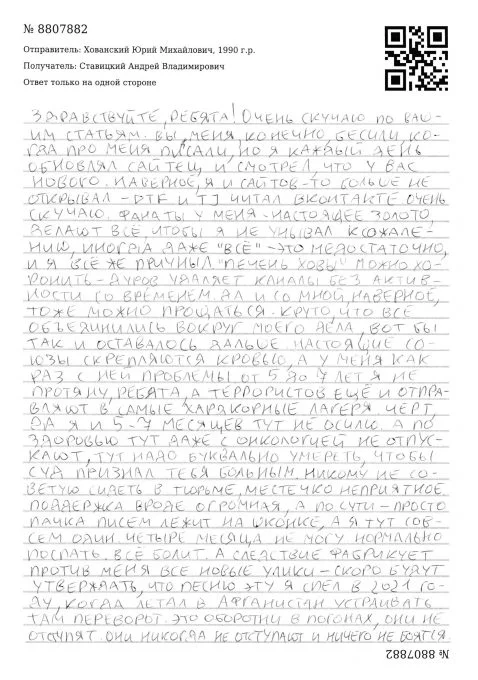 № 8807882
Отправитель: Хованский Юрий Михайлович, 1990 г.р.
Получатель: Ставицкий Андрей Владимирович
Ответ только на одной стороне
ЗДРАВСТВУЙТЕ, РЕБЯТА! ОЧЕНЬ СКУЧАЮ ПО ВАШ-
ИМ СТАТЬЯМ. ВЫ, МЕНЯ, КОНЕЧНО, БЕСИЛИ КО-
ГДА ПРО МЕНЯ ПИСАЛИ, НО Я КАЖДЫЙ ДЕНЬ
ОБНОВЛЯЛ САЙТЕЦ И СМОТРЕЛ, ЧТО У ВАС
НОВОГО. НАВЕРНОЕ, Я И САЙТОВ-ТО БОЛЬШЕ НЕ
ОТКРЫВАЛ - DTF И TJ ЧИТАЛ ВКОНТАКТЕ. ОЧЕНЬ
СКУЧАЮ. ФАНАТЫ У МЕНЯ - НАСТОЯЩЕЕ ЗОЛОТО,
ДЕЛАЮТ ВСЁ, ЧТОБЫ Я НЕ УНЫВАЛ. К СОЖАЛЕ-
НИЮ, ИНОГДА ДАЖЕ "ВСЁ" - ЭТО НЕДОСТАТОЧНО,
И Я ВСЁ ЖЕ ПРИУНЫЛ. "ПЕЧЕНЬ ХОВЫ" МОЖНО ХО-
РОНИТЬ - ДУРОВ УДАЛЯЕТ КАНАЛЫ БЕЗ АКТИВ-
НОСТИ СО ВРЕМЕНЕМ. ДА И СО МНОЙ, НАВЕРНОЕ,
ТОЖЕ МОЖНО ПРОЩАТЬСЯ. КРУТО, ЧТО ВСЕ
ОБЪЕДИНИЛИСЬ ВОКРУГ МОЕГО ДЕЛА, ВОТ БЫ
ТАК И ОСТАВАЛОСЬ ДАЛЬШЕ. НАСТОЯЩИЕ СО-
ЮЗЫ СКРЕПЛЯЮТСЯ КРОВЬЮ, А У МЕНЯ КАК
РАЗ С НЕЙ ПРОБЛЕМЫ. ОТ 5 ДО 7 ЛЕТ Я НЕ
ПРОТЯНУ, РЕБЯТА, А ТЕРРОРИСТОВ ЕЩЁ И ОТПРА-
ВЛЯЮТ В САМЫЕ ХАРДКОРНЫЕ ЛАГЕРЯ. ЧЕРТ,
ДА Я И 5-7 МЕСЯЦЕВ ТУТ НЕ ОСИЛЮ. А ПО
ЗДОРОВЬЮ ТУТ ДАЖЕ С ОНКОЛОГИЕЙ НЕ ОТПУС-
КАЮТ, ТУТ НАДО БУКВАЛЬНО УМЕРЕТЬ, ЧТОБЫ
СУД ПРИЗНАЛ ТЕБЯ БОЛЬНЫМ. НИКОМУ НЕ СО-
ВЕТУЮ СИДЕТЬ В ТЮРЬМЕ, МЕСТЕЧКО НЕПРИЯТНОЕ.
ПОДДЕРЖКА ВРОДЕ ОГРОМНАЯ, А ПО СУТИ - ПРОСТО
ПАЧКА ПИСЕМ ЛЕЖИТ НА ШКОНКЕ, А Я ТУТ СОВ-
СЕМ ОДИН. ЧЕТЫРЕ МЕСЯЦА НЕ МОГУ НОРМАЛЬНО
ПОСПАТЬ. ВСЁ БОЛИТ. А СЛЕДСТВИЕ ФАБРИКУЕТ
ПРОТИВ МЕНЯ ВСЕ НОВЫЕ УЛИКИ - СКОРО БУДУТ
УТВЕРЖДАТЬ, ЧТО ПЕСНЮ ЭТУ Я СПЕЛ В 2021 ГО-
ДУ, КОГДА ЛЕТАЛ В АФГАНИСТАН УСТРАИВАТЬ
ТАМ ПЕРЕВОРОТ. ЭТО ОБОРОТНИ В ПОГОНАХ, ОНИ НЕ
ОТСТУПЯТ. ОНИ НИКОГДА НЕ ОТСТУПАЮТ И НИЧЕГО НЕ БОЯТСЯ
№ 8807882